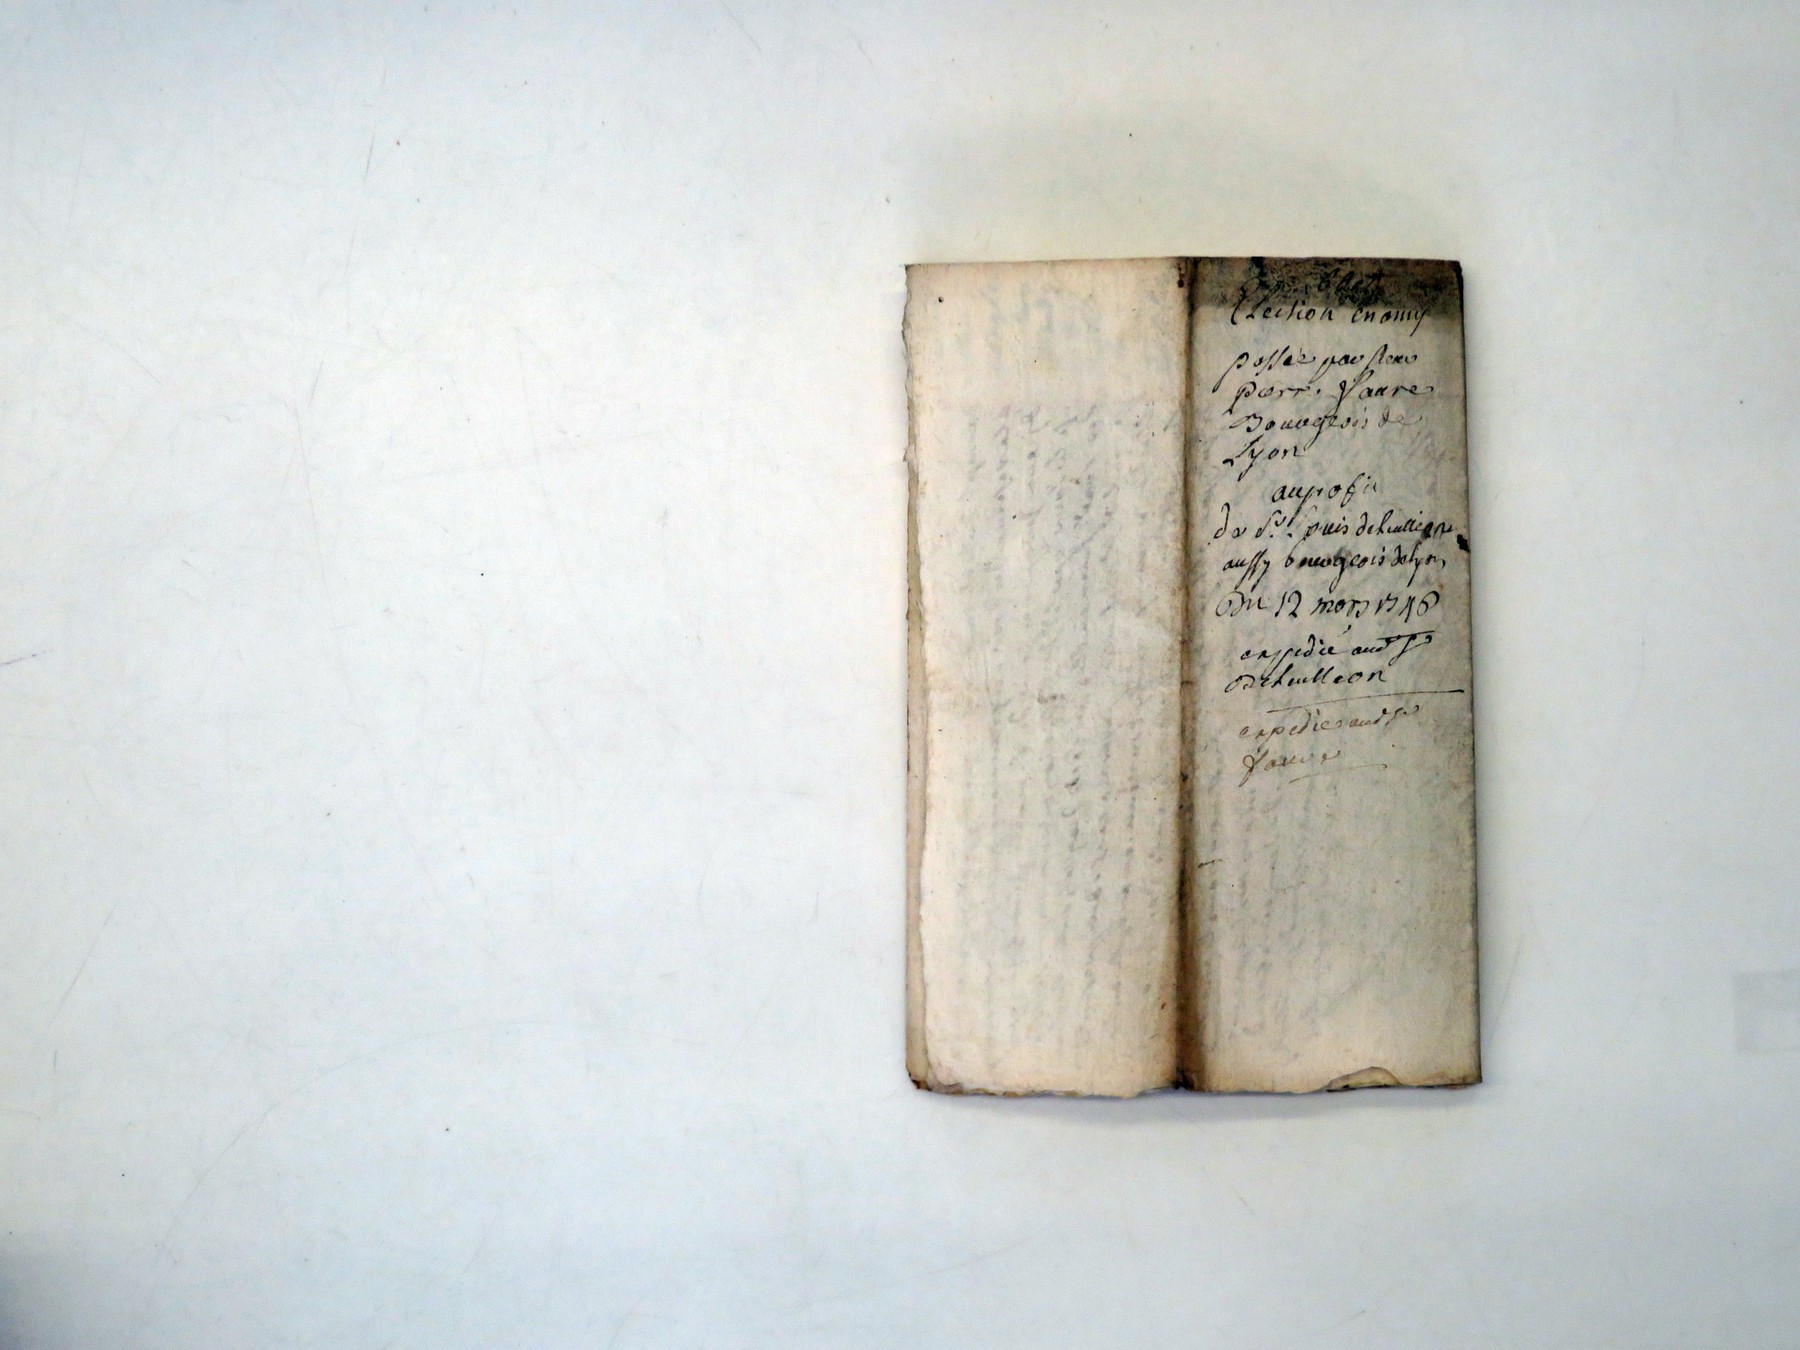 Election en amy
passée par sieur
pierre faure
Bourgeois de
Lyon
au profit
de Sr. Louis
aussy bourgeois de lyon
Du 12 mars 1746
expedié aud Sr
expedié aud Sr
faure